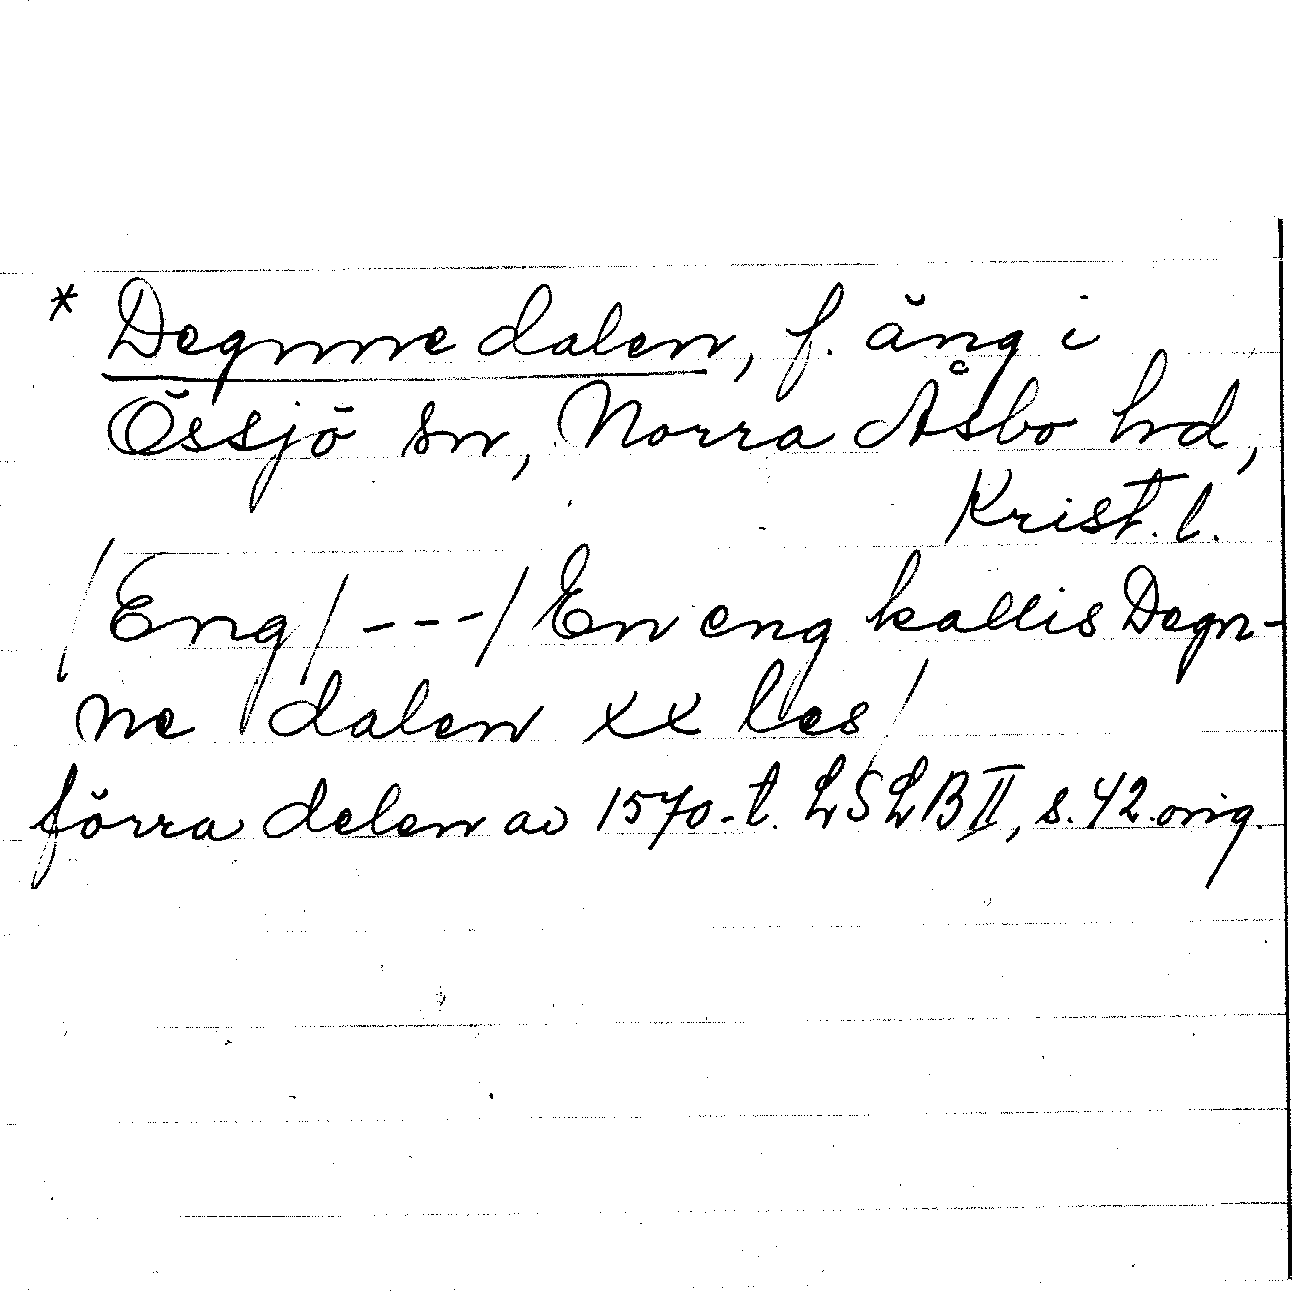 * Degnne dalen, f. äng i
Össjö sn, Norra Åsbo hd,
Krist. l.
/Eng/ - - - / En eng kallis Degn-
ne dalen xx les/
förra delen av 1570-t. LSLB II, s. 42. orig.